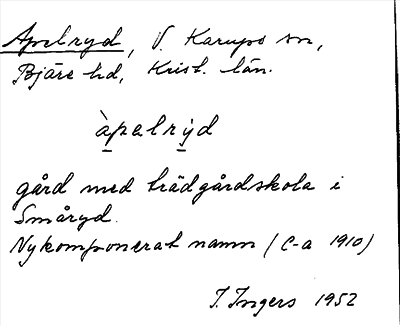 Apelryd, V. Karups sn,
Bjäre hd, Krist. län.
àpelrẏd
gård med trädgårdskola i
Småryd.
Nykomponerat namn (C-a 1910)
I. Ingers 1952